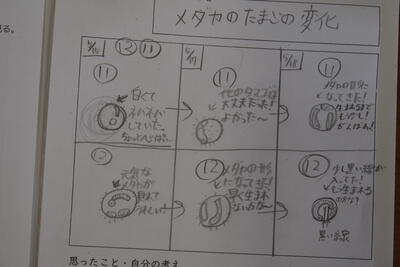 る。
メダカのたまごの変化
5/15 ⑫ ⑪
⑪
白くて
ネバネバ
していた。
5/17
⑪
他のタマゴは
大丈夫だった!
よかった〜
5/18
⑪
メダカの目に
なってきた!
がんばれ!
⑫
元気な
メダカが
見れて
うれしい
⑫
メダカの形
になってきた!
早く生まれ
ないかな〜
⑫
少し黒い線が
入ってた!
も生まれる
のかな?
黒い線
思ったこと・自分の考え